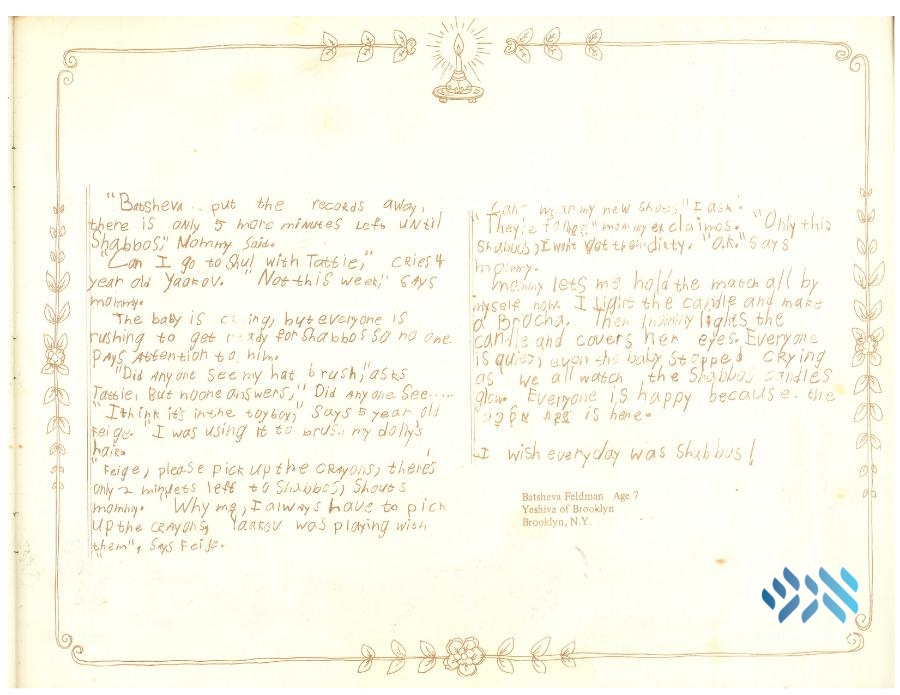 "Batsheva .. put the records away,
there is only 5 more minutes Left until
Shabbos," Mommy said.
"Can I go to Shul with Tattie," cries 4
year old Yaakov. "Not this week" says
mommy.
The baby is ing, but everyone is
rushing to get ready for Shabbos so no one
pays Attention to him.
"Did Anyone see my hat brush," asks
Tattie, But noone answers," Did Anyone See.....
"I think it's in the toybox," says 5 year old
Feige. "I was using it to brush my dolly's
hair.
"Feige, please pick up the crayons, there's
only 2 minutets left to Shabbos, Shouts
mommy. "Why me, I always have to pick
up the crayons, Yaakov was playing with
them", says Feige.
"
Can wear my new shoes," I ask.
"They're " mommy exclaimes. "Only this
Shabbos, I wont get them dirty. "O.K." says
mommy.
Mommy lets me hold the match all by
myself now. I light the candle and make
a Brocha. Then mommy lights the
candle and covers her eyes. Everyone
is quiet, even the baby stopped crying
as we all watch the Shabbos candles
glow. Everyone is happy because the
is here.
I wish everyday was Shabbos!
Batsheva Feldman Age 7
Yeshiva of Brooklyn
Brooklyn, N.Y.